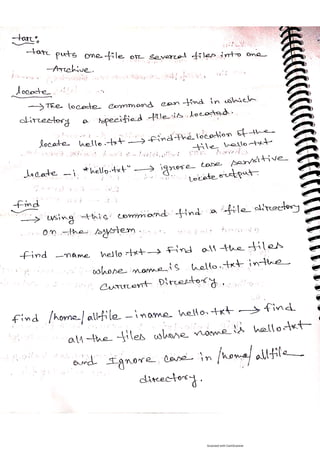 tar:
tar puts one file or several files into one
Archive.
locate
→ The locate command can find in which
directory a specified file is located.
locate hello.txt → find the location of the
file hello.txt.
locate -i "*hello.txt" → ignore case sensitive
locate output.
find
→ using this command find a file directory
on the system.
find -name hello.txt → find all the files
whose name is hello.txt in the
Current Directory.
find /home/allfile -iname hello.txt → find
all the files whose name is hello.txt
and Ignore case in /home/allfile
directory.
Scanned with CamScanner